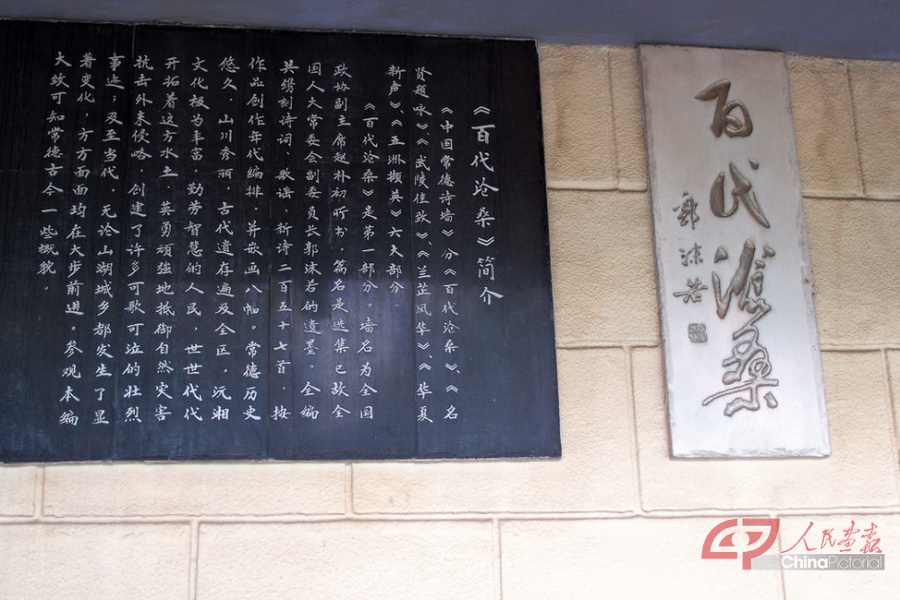 百代滄桑
郭沫若
《百代沧桑》简介
《中国常德诗墙》分《百代沧桑》、《名
贤题咏》、《武陵佳致》、《兰芷风华》、《华夏
新声》、《五洲撷英》六大部分。
《百代沧桑》是第一部分。墙名为全国
政协副主席赵朴初所书，篇名是选集已故全
国人大常委会副委员长郭沫若的遗墨。全编
共镌刻诗词、歌谣、析诗二百五十七首，按
作品创作年代编排，并嵌画八幅。常德历史
悠久，山川秀丽，古代遗存遍及全区，沅湘
文化极为丰富。勤劳智慧的人民，世世代代
开拓着这方水土，英勇顽强地抵御自然灾害
抗击外来侵略，创建了许多可歌可泣的壮烈
事迹；及至当代，无论山湖城乡都发生了显
著变化，方方面面均在大步前进。参观本编
大致可知常德古今一些概貌。
人民画报
ChinaPictorial